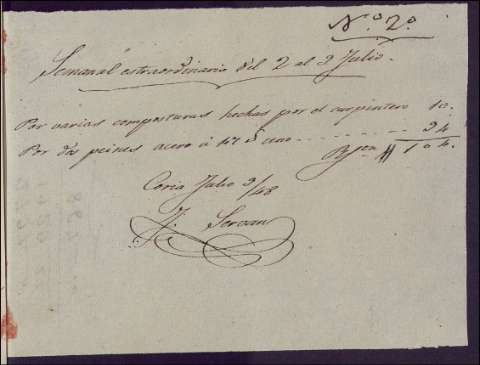 Nº 2º
Semanal extraordinario del 2 al 9 Julio.
Por varias composturas hechas por el carpintero 10.
Por dos peines acero á 47 uno 94
104.
Coria Julio 9/48
J. Servan